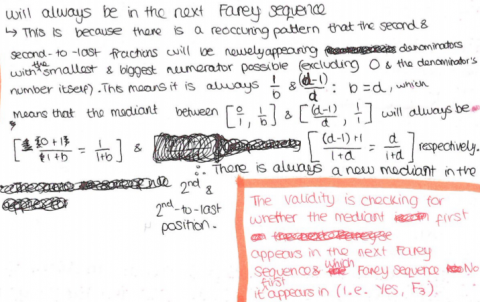 will always be in the next Farey sequence
↳ This is because there is a reoccuring pattern that the second &
second-to-last fractions will be newely appearing denominators
with the smallest & biggest numerator possible (excluding 0 & the denominator's
number itself). This means it is always 1/b & (d-1)/d : b=d, which
means that the mediant between [0/1, 1/b] & [(d-1)/d, 1/1] will always be
[0+1/1+b = 1/1+b] & [(d-1)+1/1+d = d/1+d] respectively.
∴ There is always a new mediant in the
2nd &
2nd-to-last
position.
The validity is checking for
whether the mediant first
appears in the next Farey
Sequence & which Farey sequence No
it first appears in (I.e. Yes, F3).